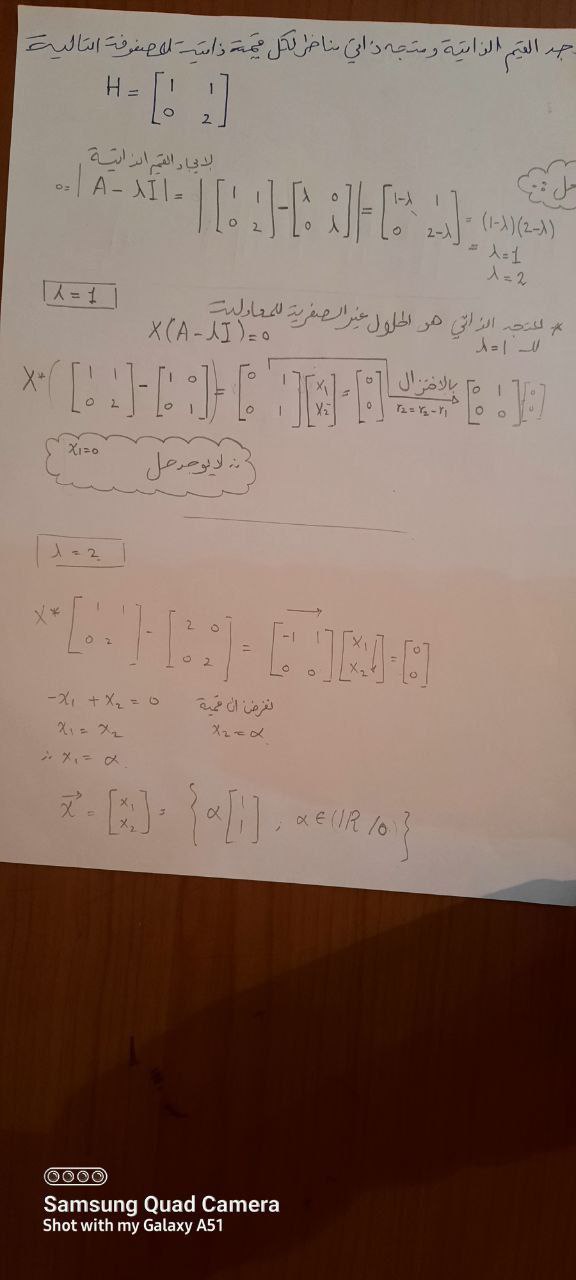 جد القيم الذاتية ومتجه ذاتي مناظر لكل قيمة ذاتية للمصفوفة التالية
H = [1 1; 0 2]
لايجاد القيم الذاتية
0= |A - λI| = |[1 1; 0 2] - [λ 0; 0 λ]| = [1-λ 1; 0 2-λ] = (1-λ)(2-λ)
= λ=1
λ=2
λ = 1
* المتجه الذاتي هو الحلول غير الصفرية للمعادلة
X(A - λI) = 0
لـ λ=1
X* ([1 1; 0 2] - [1 0; 0 1]) = [0 1; 0 1] [x₁; x₂] = [0; 0] بالاختزال r₂ = r₂ - r₁ → [0 1; 0 0] [0; 0]
x₁=0
∴ لا يوجد حل
λ = 2
X* [1 1; 0 2] - [2 0; 0 2] = [-1 1; 0 0] [x₁; x₂] = [0; 0]
-x₁ + x₂ = 0 نفرض ان قيمة
x₁ = x₂ x₂ = α
∴ x₁ = α
x⃗ = [x₁; x₂] = { α [1; 1] , α ∈ (IR /0) }
Samsung Quad Camera
Shot with my Galaxy A51